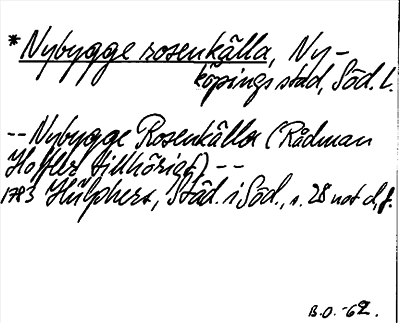 *Nybygge rosenkälla, Ny-
köpings stad, Söd. l.
-- Nybygge Rosenkälla (Rådman
Hoffler tillhörigt) --
1783 Hülphers, Städ. i Söd., s. 28 not d, f.
B.O. -62.